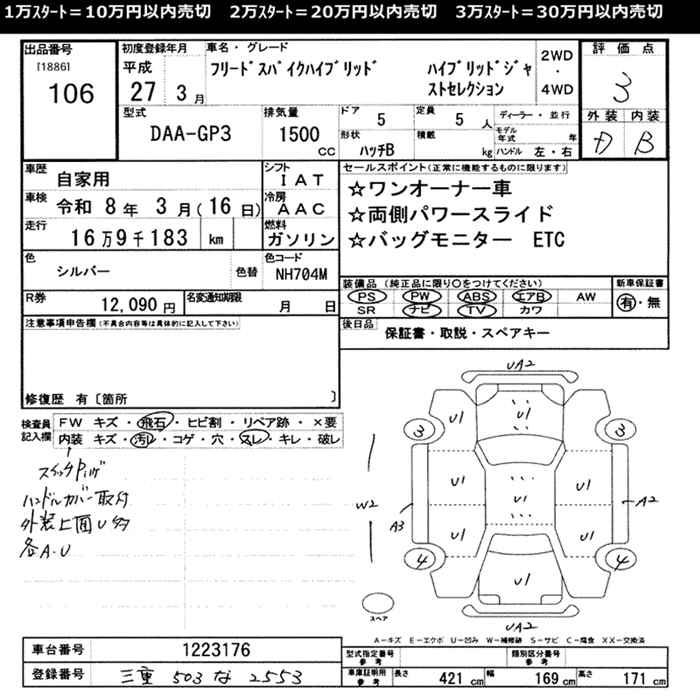 1万スタート＝10万円以内売切　2万スタート＝20万円以内売切　3万スタート＝30万円以内売切
出品番号
[1886]
106
初度登録年月
平成
27 3月
車名・グレード
フリードスパイクハイブリッド　ハイブリッドジャストセレクション
2WD
・
4WD
評価点
3
外装 内装
B
型式
DAA-GP3
排気量
1500 CC
ドア 5
形状 ハッチB
定員 5人
積載 kg
ディーラー・並行
モデル年式 年
ハンドル 左・右
車歴
自家用
車検
令和 8年 3月(16日)
走行
16万9千183 km
シフト
IAT
冷房
AAC
燃料
ガソリン
セールスポイント(正常に機能するものに限ります)
☆ワンオーナー車
☆両側パワースライド
☆バッグモニター ETC
色
シルバー
色替
色コード
NH704M
装備品(純正品に限り○をつけてください)
PS PW ABS エアB AW
SR ナビ TV カワ
新車保証書
有・無
R券
12,090円
名変通知期限
月 日
後日品
保証書・取説・スペアキー
注意事項申告欄(不具合内容等は具体的に記入して下さい)
修復歴 有〔箇所 〕
検査員記入欄
FW キズ・飛石・ヒビ割・リペア跡・×要
内装 キズ・汚レ・コゲ・穴・スレ・キレ・破レ
ハンドルカバー取付
外装上面U多
各A・U
UA2
U1
3 3
U1 U1 U1
W2 A3 A2
U1 U1
4 4
U1
UA2
スペア
A－キズ E－エクボ U－凹み W－補修跡 S－サビ C－腐食 XX－交換済
車台番号
1223176
登録番号
三重 503 な 2553
型式指定番号
参考
類別区分番号
参考
車庫証明用
参考
長さ 421 cm 幅 169 cm 高さ 171 cm